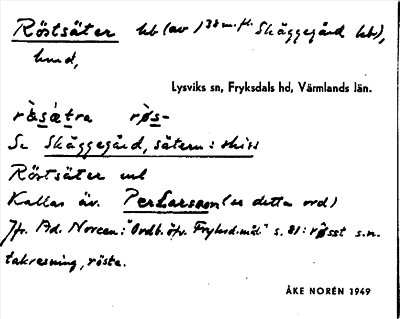 Röstsäter hb (av 1 38 m. fl. Skäggegård hbr),
hmd,
Lysviks sn, Fryksdals hd, Värmlands län.
rø̀sǽtra rø̀s-
Se Skäggegård, sätern: skiss
Röstsäter ml
Kallas äv. PerLarsson (se detta ord)
Jfr. Ad. Noreen: "Ordb. öfv. Fryksd.mål." s. 81: røsst s.n.
takresning, röste.
ÅKE NORÉN 1949